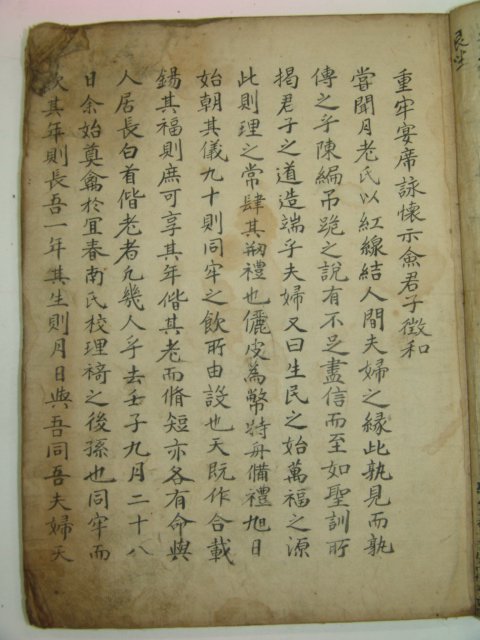 重牢宴席詠懷示僉君子徵和
嘗聞月老氏以紅線結人間夫婦之緣此孰見而孰
傳之乎陳編吊詭之說有不足盡信而至如聖訓所
揭君子之道造端乎夫婦又曰生民之始萬福之源
此則理之常肆其刱禮也儷皮為幣特舟備禮旭日
始朝其儀九十則同牢之飮所由設也天旣作合載
錫其福則庶可享其年偕其老而脩短亦各有命與
人居長白首偕老者凡幾人乎去壬子九月二十八
日余始奠禽於宜春南氏校理褘之後孫也同牢而
飮其年則長吾一年其生則月日與吾同吾夫婦天
良